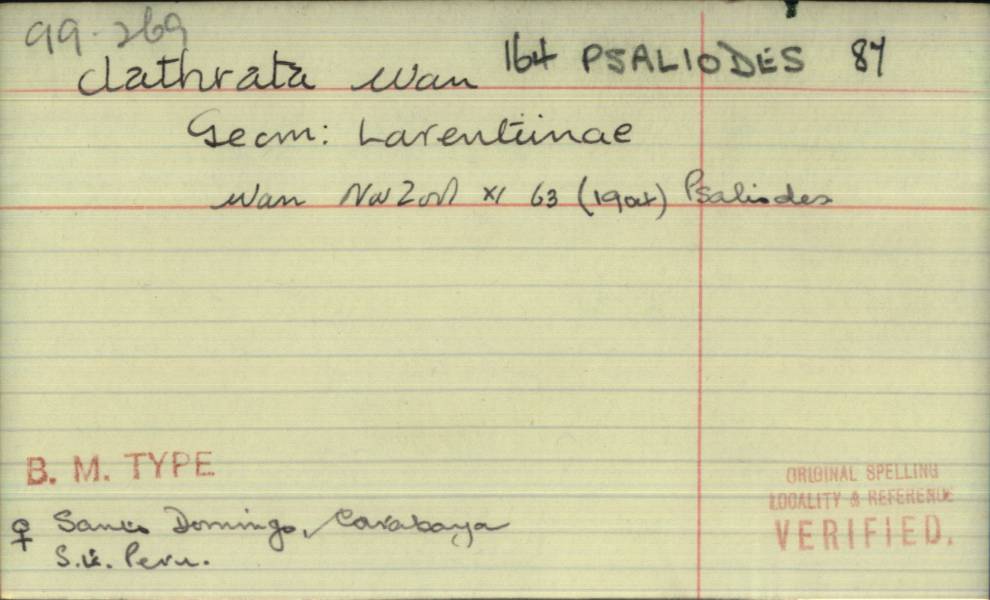 99.269
clathrata Warr 164 PSALIODES 87
Geom: Larentiinae
Warr Nov Zool XI 63 (1904) Psaliodes
B. M. TYPE
♀ Santo Domingo, Carabaya
S.E. Peru.
ORIGINAL SPELLING
LOCALITY & REFERENCE
VERIFIED.